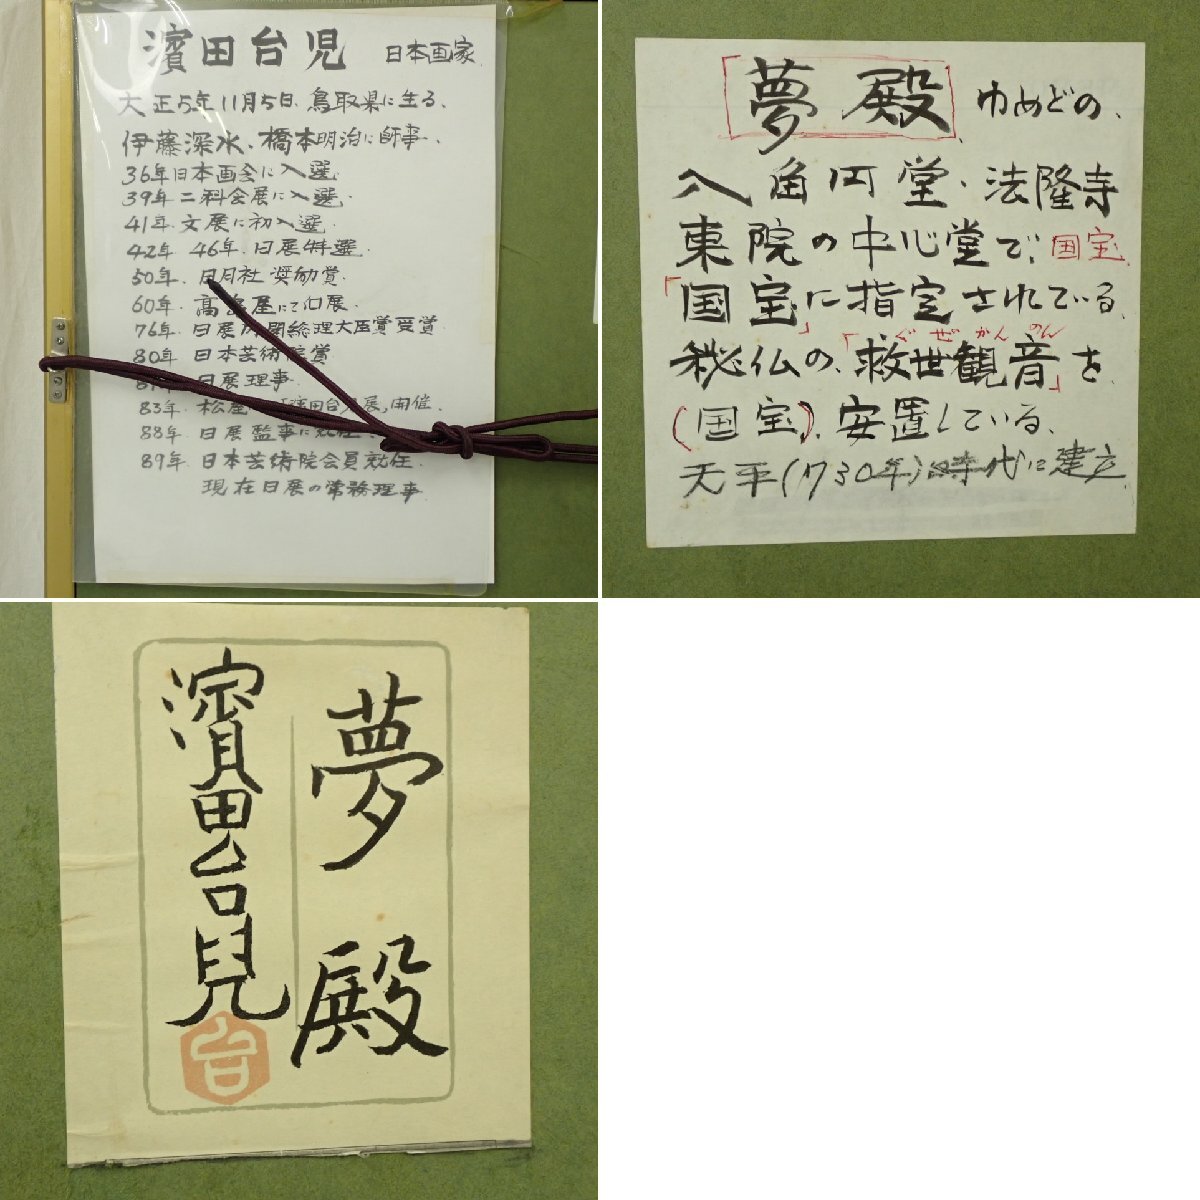 濱田台児 日本画家
大正5年11月5日、鳥取県に生る、
伊藤深水、橋本明治に師事、
36年日本画会に入選、
39年二科会展に入選、
41年 文展に初入選、
42年 46年、日展特選、
50年、日月社 奨励賞、
60年、高島屋にて個展、
76年、日展 内閣総理大臣賞受賞
80年 日本芸術院賞
日展理事
83年、松屋 「濱田台児展」開催、
88年、日展監事に就任、
89年、日本芸術院会員就任、
現在日展の常務理事
「夢殿」 ゆめどの、
八角円堂、法隆寺
東院の中心堂で、国宝
「国宝」に指定されている、
ぐぜかんのん
秘仏の、「救世観音」を
(国宝)、安置している、
天平(730年)時代に建立、
夢殿
濱田台児
台